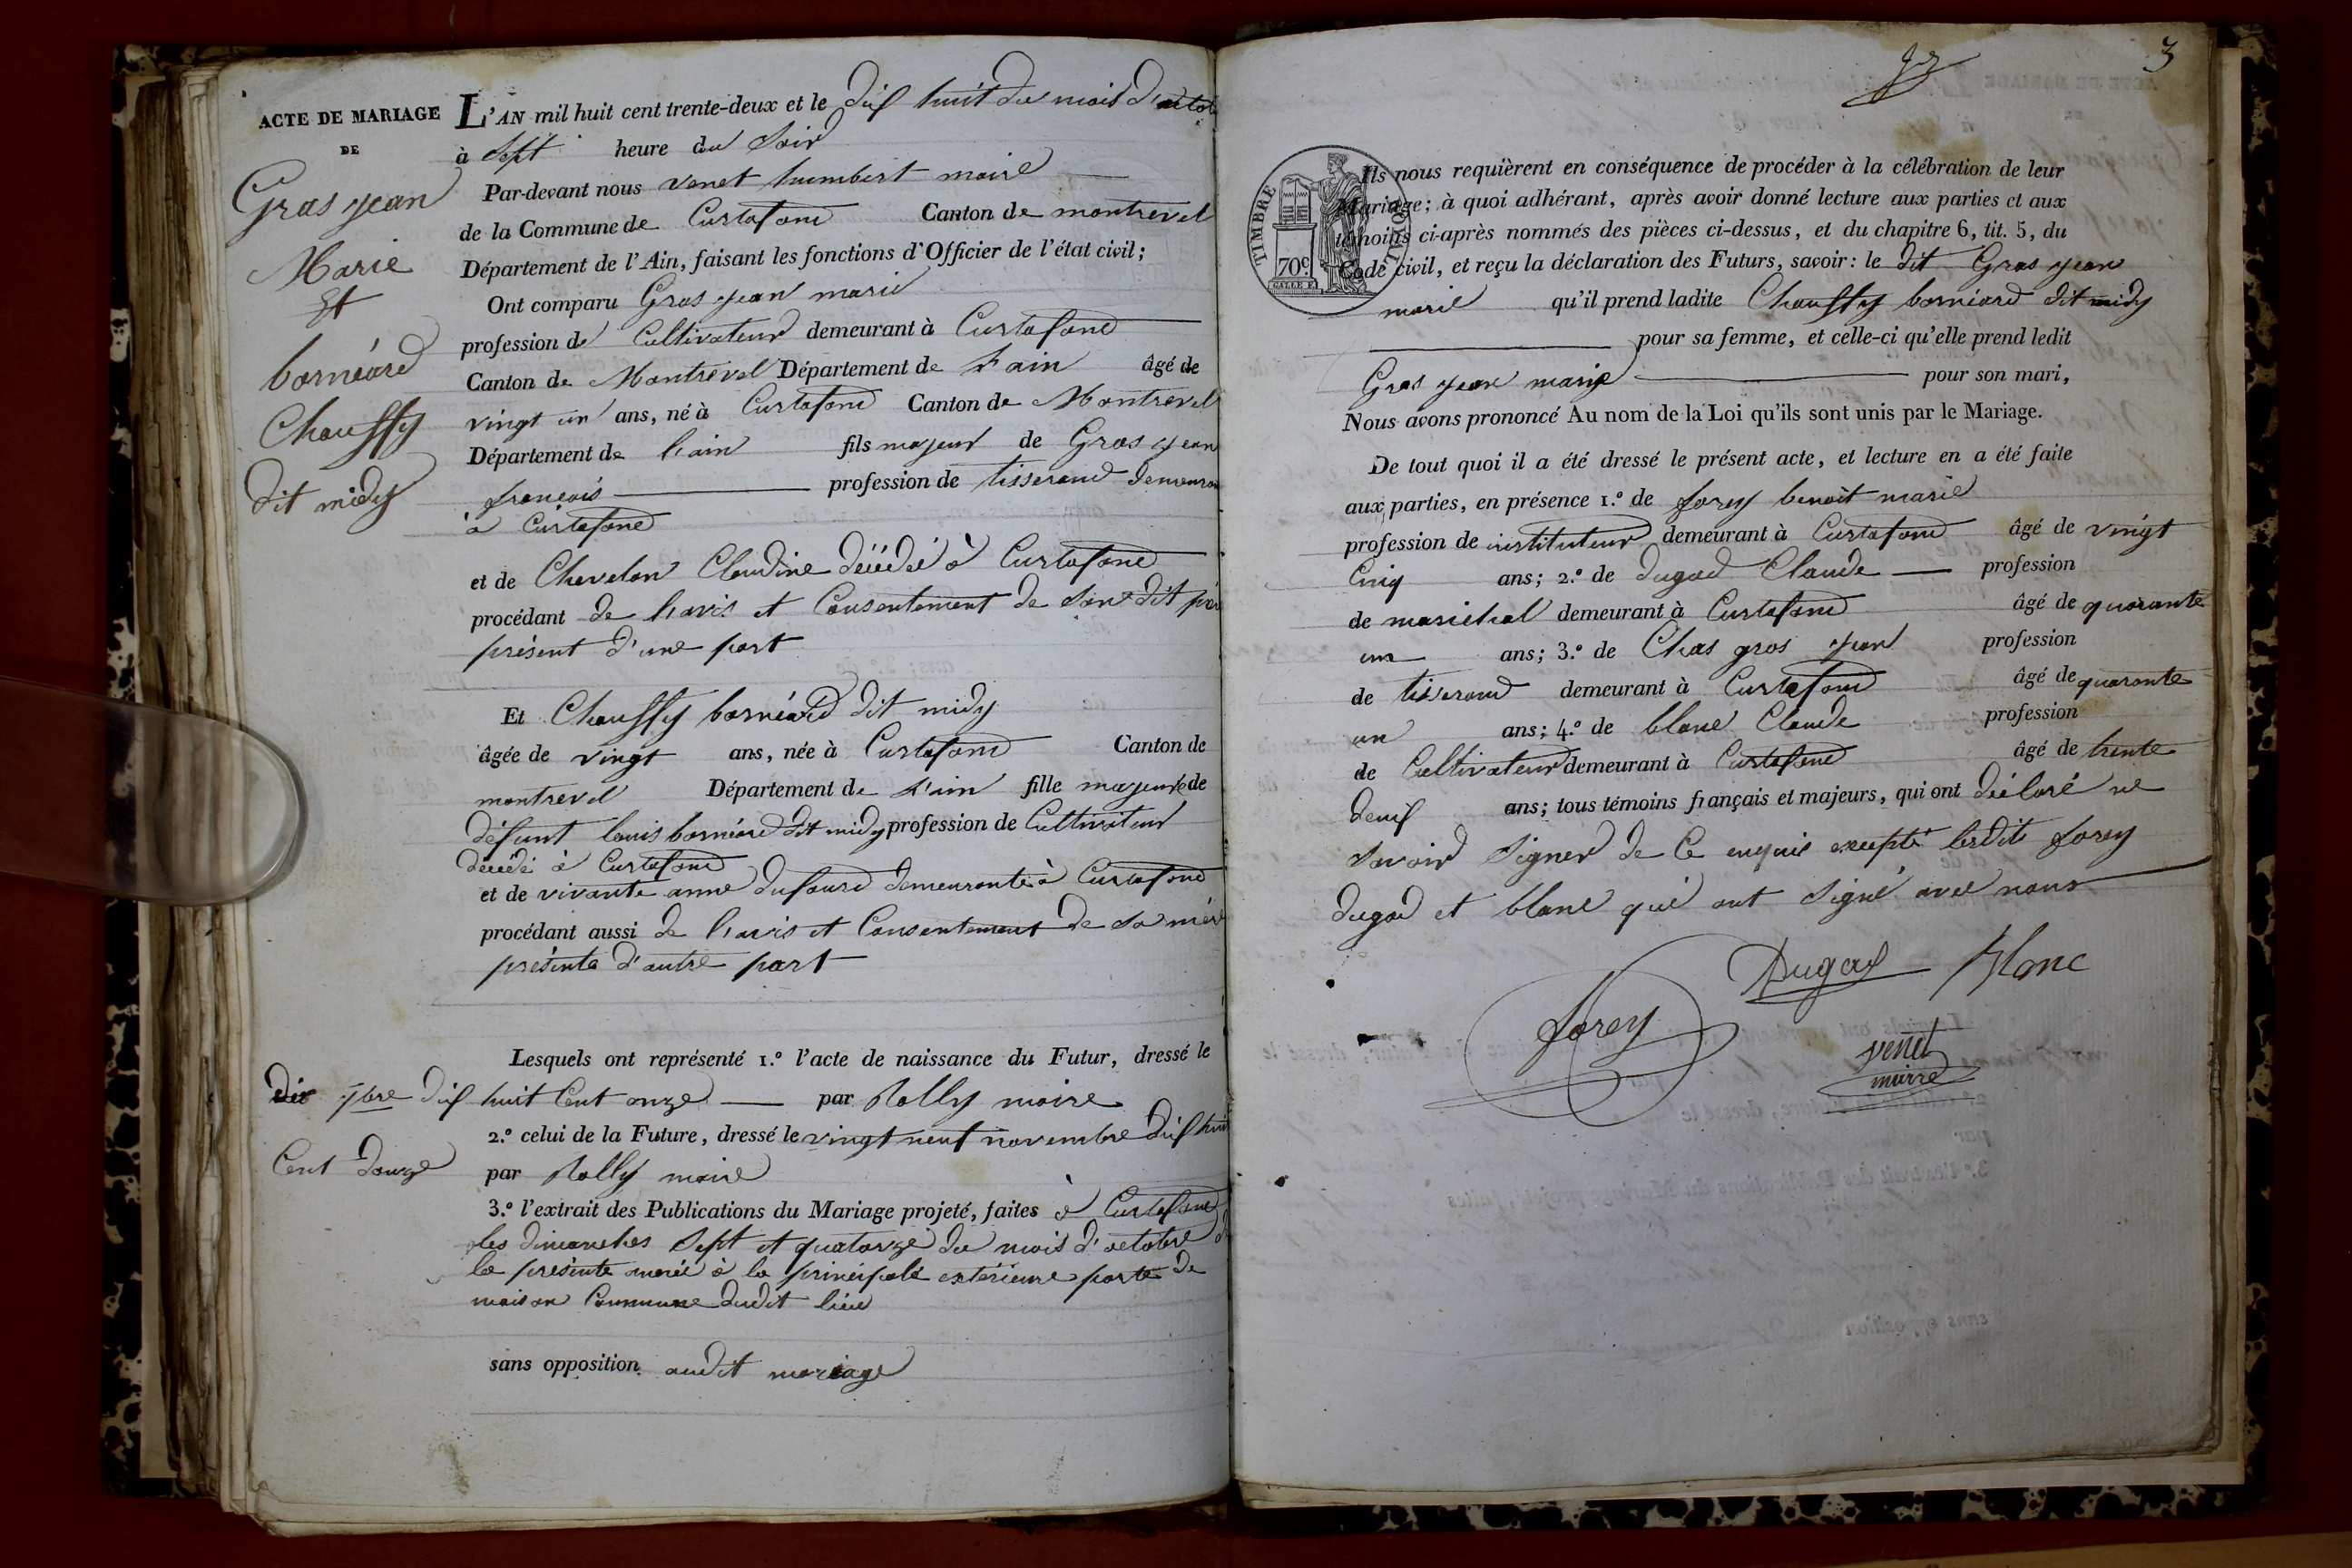 ACTE DE MARIAGE
DE
Gras jean
Marie
Et
bornéard
Chauffy
dit midy
L'AN mil huit cent trente-deux et le dix huit du mois d'octob
à Sept heure du Soir
Par-devant nous venet humbert maire
de la Commune de Curtafond Canton de montrevel
Département de l'Ain, faisant les fonctions d'Officier de l'état civil;
Ont comparu Gras jean marie
profession de Cultivateur demeurant à Curtafond
Canton de Montrevel Département de L'ain âgé de
vingt un ans, né à Curtafond Canton de Montrevel
Département de l'ain fils majeur de Gras jean
francois profession de tisserand demeuran
à Curtafond
et de Chevelon Claudine décédée à Curtafond
procédant de l'avis et Consentement de Son dit pèr
présent d'une part
Et Chauffy bornéard dit midy
âgée de vingt ans, née à Curtafond Canton de
montrevel Département de L'ain fille majeure de
défunt louis bornéard dit midy profession de Cultivateur
décédé à Curtafond
et de vivante anne dufourd demeurante à Curtafond
procédant aussi de l'avis et Consentement de Sa mère
présente d'autre part
Lesquels ont représenté 1.º l'acte de naissance du Futur, dressé le
dix 7bre dix huit Cent onze par Rolly maire
2.º celui de la Future, dressé le vingt neuf novembre dix huit
Cent douze par Rolly maire
3.º l'extrait des Publications du Mariage projeté, faites à Curtafond
les dimanches Sept et quatorze du mois d'octobre d
la présente année à la principale extérieure porte de
maison Commune dudit lieu
sans opposition audit mariage
3
TIMBRE
ROYAL
70c.
Ils nous requièrent en conséquence de procéder à la célébration de leur
Mariage; à quoi adhérant, après avoir donné lecture aux parties et aux
témoins ci-après nommés des pièces ci-dessus, et du chapitre 6, tit. 5, du
Code civil, et reçu la déclaration des Futurs, savoir: le dit Gras jean
marie qu'il prend ladite Chauffy bornéard dit midy
pour sa femme, et celle-ci qu'elle prend ledit
Gras jean marie pour son mari,
Nous avons prononcé Au nom de la Loi qu'ils sont unis par le Mariage.
De tout quoi il a été dressé le présent acte, et lecture en a été faite
aux parties, en présence 1.º de forey benoit marie
profession de instituteur demeurant à Curtafond âgé de vingt
Cinq ans; 2.º de dugad Claude profession
de maréchal demeurant à Curtafond âgé de quarante
un ans; 3.º de Chas gros jean profession
de tisserand demeurant à Curtafond âgé de quarante
un ans; 4.º de blanc Claude profession
de Cultivateur demeurant à Curtafond âgé de trente
deux ans; tous témoins français et majeurs, qui ont déclaré ne
Savoir Signer de Ce enquis excepté lesdits forey
dugad et blanc qui ont Signé avec nous
Dugad Blanc
forey
venet
maire